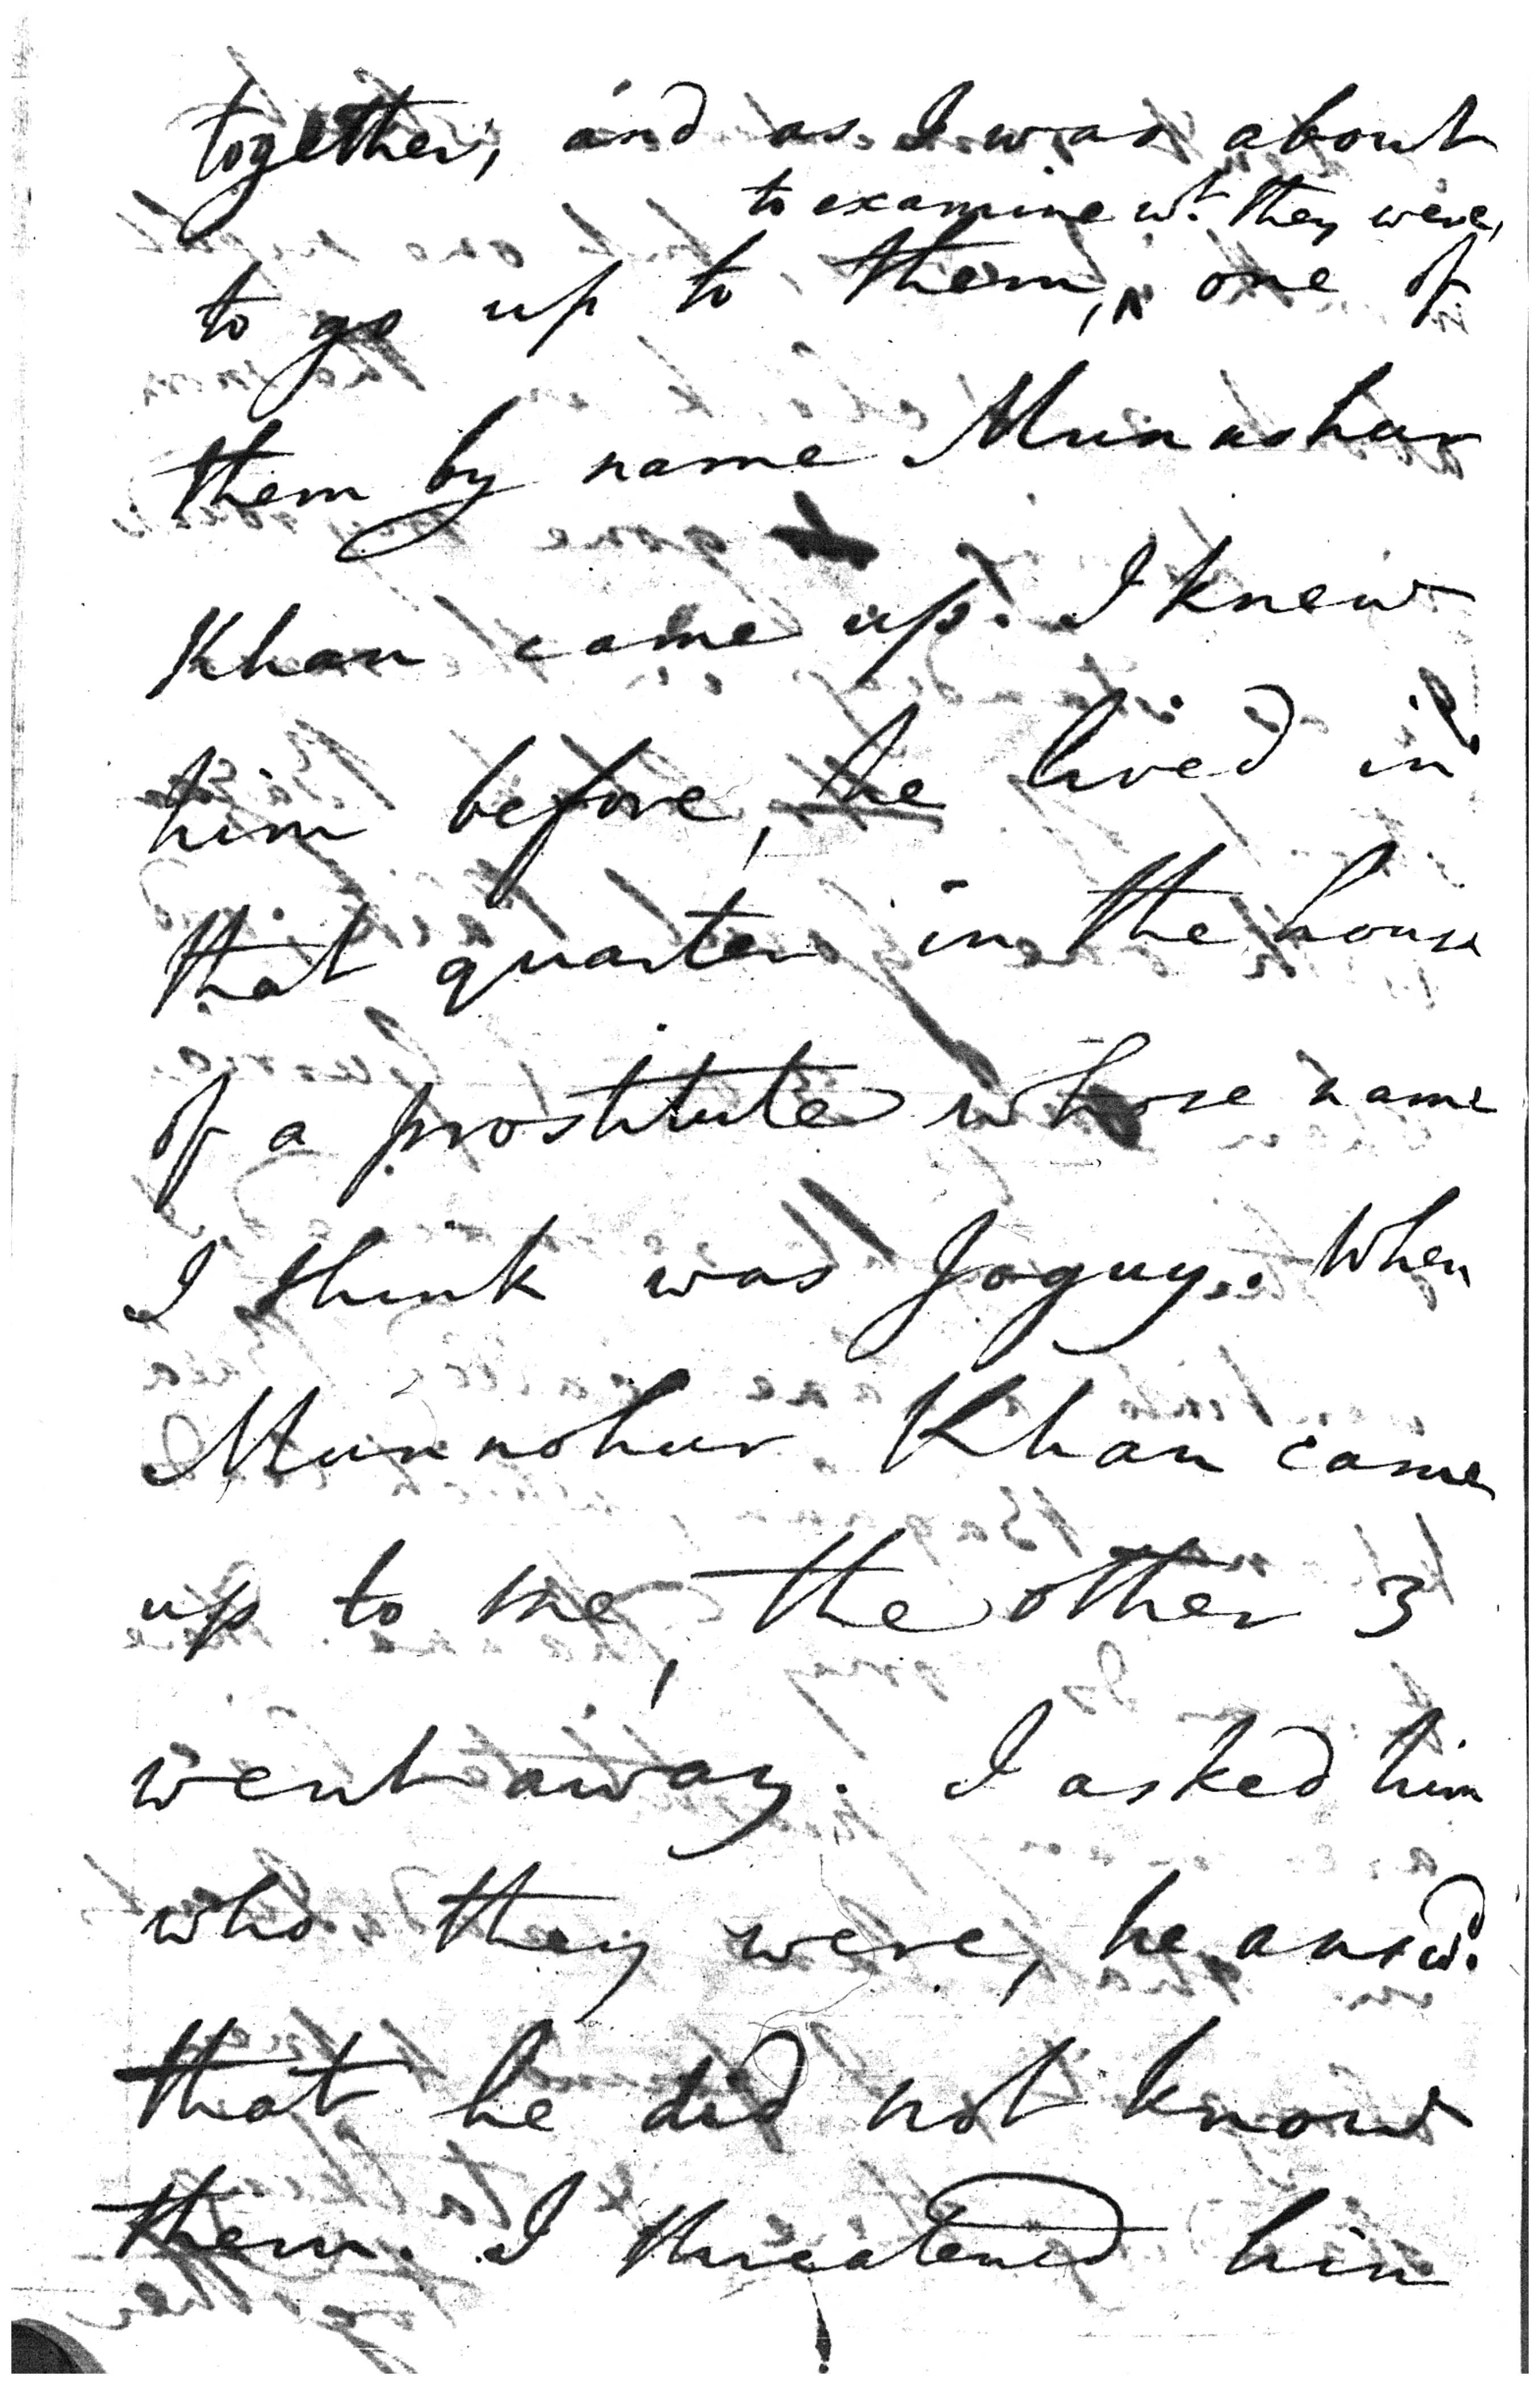 together, and as I was about
to examine wt. they were,
to go up to them, ^ one of
them by name Munnohur
Khan came up. I knew
him before, he lived in
that quarter in the house
of a prostitute whose name
I think was Joguy. When
Munnohur Khan came
up to me, the other 3
went away. I asked him
who they were, he answd.
that he did not know
them. I threatened him